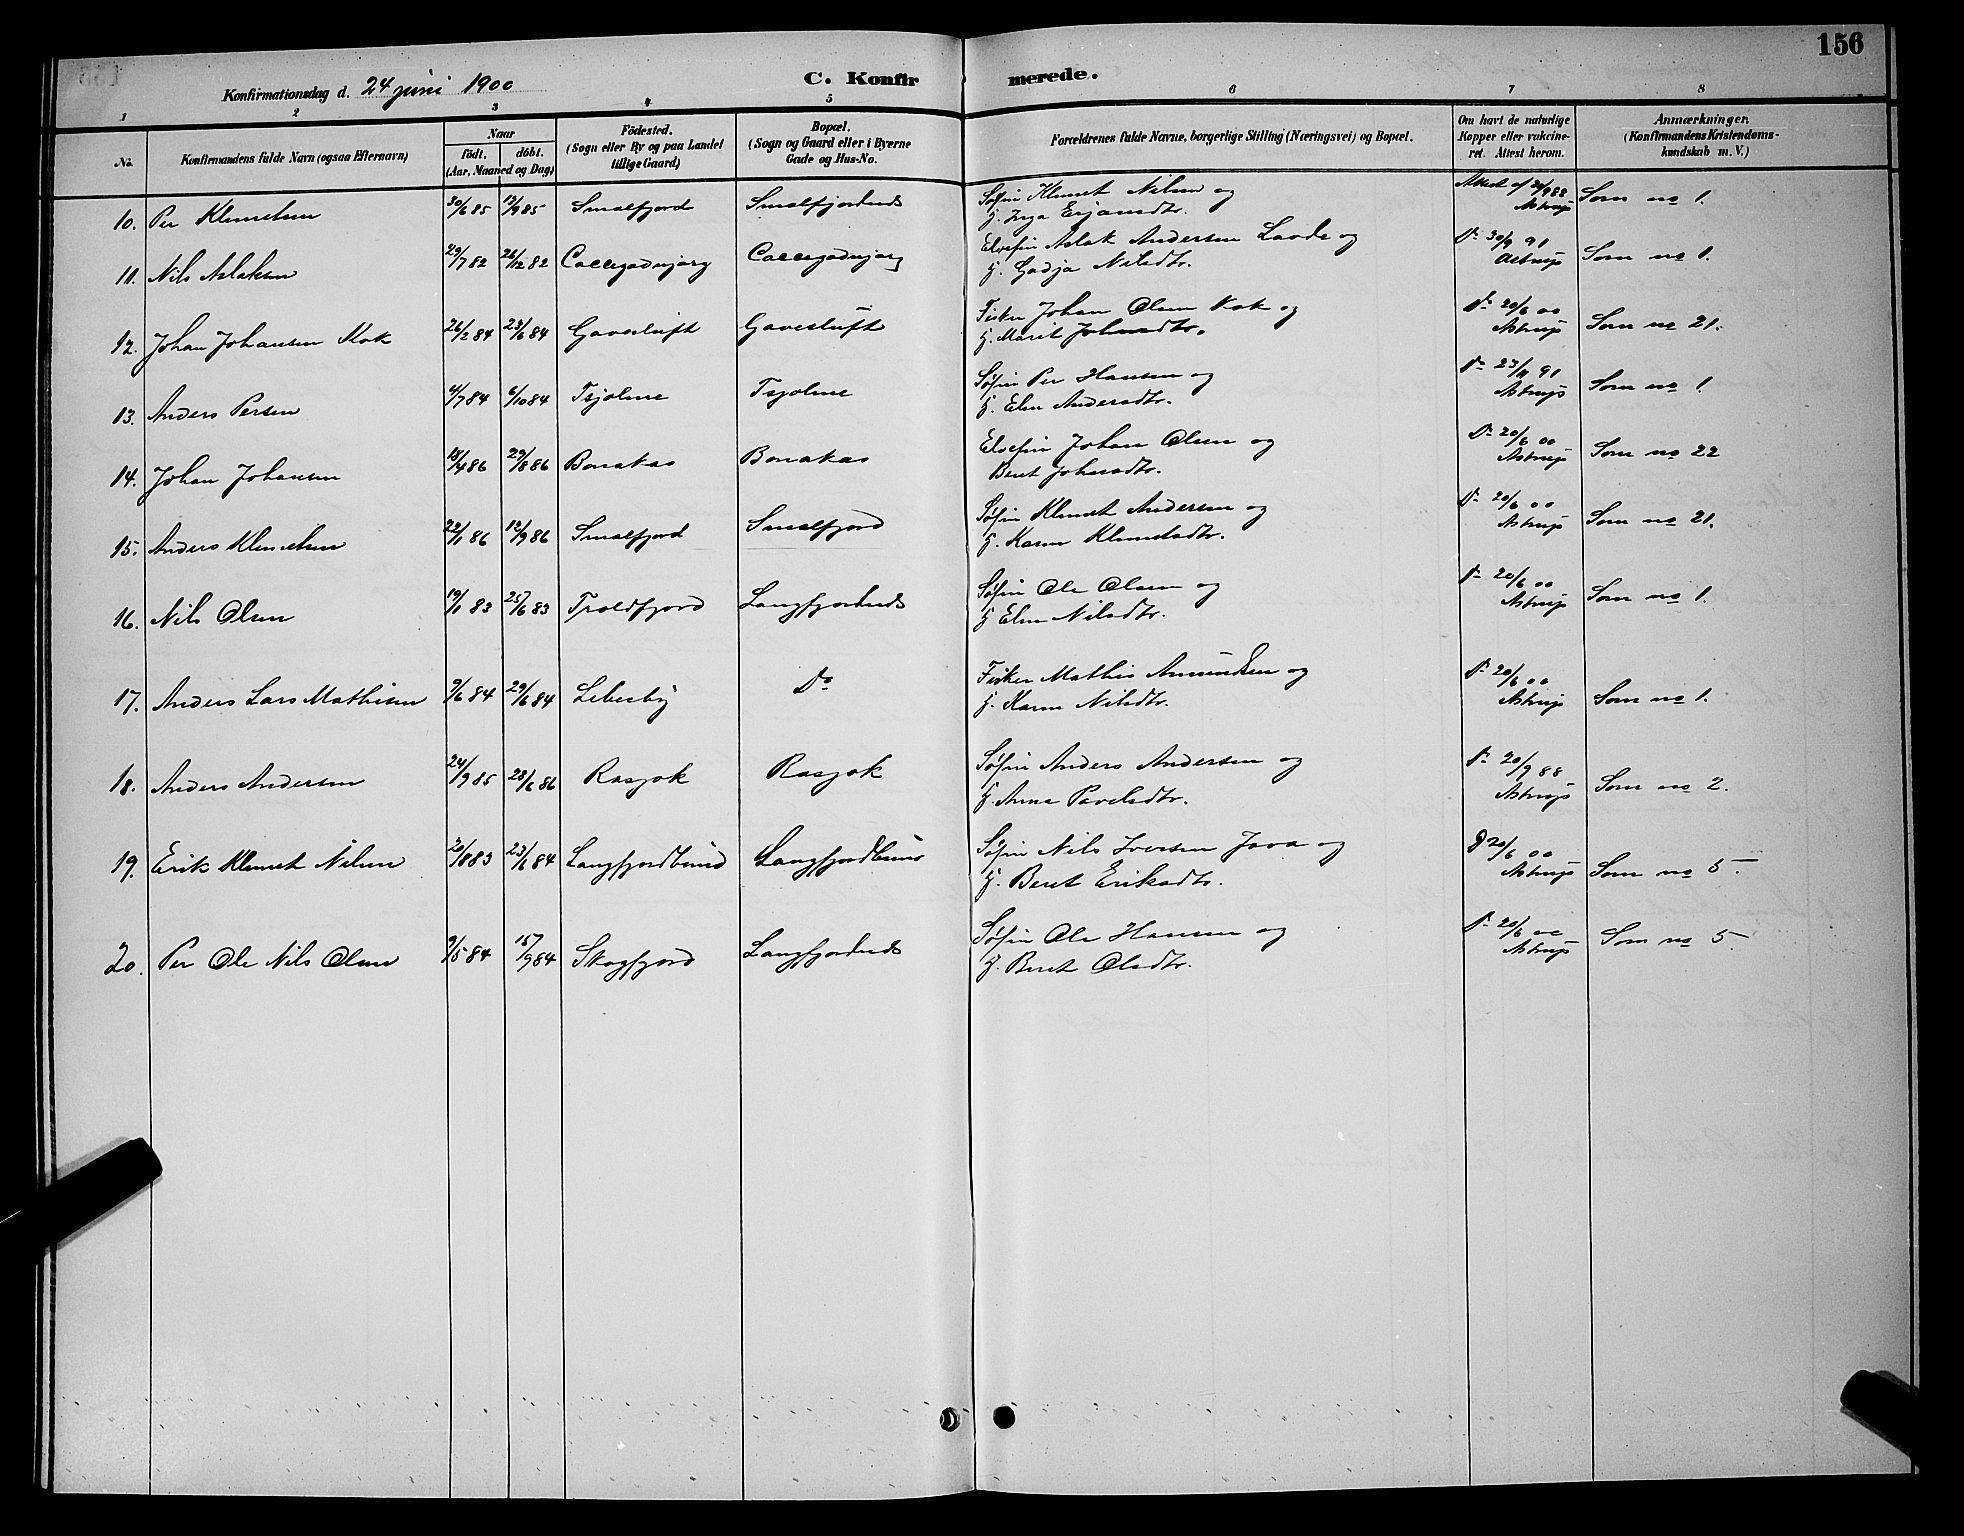 156
C. Konfirmerede.
Konfirmationsdag d. 24 juni 1900
1 2 3 4 5 6 7 8
No. Konfirmandens fulde Navn (ogsaa Efternavn) Naar födt. döbt. (Aar, Maaned og Dag) Födested. (Sogn eller By og paa Landet tillige Gaard) Bopæl. (Sogn og Gaard eller i Byerne Gade og Hus-No. Forældrenes fulde Navne, borgerlige Stilling (Næringsvei) og Bopæl. Om havt de naturlige Kopper eller vakcineret. Attest herom. Anmærkninger. (Konfirmandens Kristendomskundskab m. V.)
10. Per Klemetsen 30/6 85 13/9 85 Smalfjord Smalfjordnes Søfin Klemet Nilsen og Attest af 20/9 88 Som no 1.
H. Inga Erjansdtr. Astrup
11. Nils Aslaksen 29/7 82 26/12 82 Callegadnjarg Callegadnjarg Elvefin Aslak Andersen Laode og Do 30/9 91 Som no 1.
H. Gadja Nilsdtr. Astrup
12. Johan Johansen Kok 26/2 84 23/6 84 Gavesluft Gavesluft Fisker Johan Olsen Kok og Do 20/6 00 Som no 21.
H. Marit Johnsdtr. Astrup
13. Anders Persen 4/7 84 6/10 84 Tsjolme Tsjolme Søfin Per Hansen og Do 23/11 91 Som no 1.
H. Elen Andersdtr. Astrup
14. Johan Johansen 18/4 86 29/8 86 Bonakas Bonakas Elvefin Johan Olsen og Do 20/6 00 Som no 22
Beret Johnsdtr. Astrup
15. Anders Klemetsen 22/1 86 12/9 86 Smalfjord Smalfjord Søfin Klemet Andersen og Do 20/6 00 Som no 21.
H. Karen Klemetsdtr. Astrup
16. Nils Olsen 19/1 83 25/6 83 Troldfjord Langfjordnes Søfin Ole Olsen og Do 20/6 00 Som no 1.
H Elen Nilsdtr. Astrup
17. Anders Lars Mathisen 9/6 84 29/6 84 Lebesby Do Fisker Mathis Amundsen og Do 20/6 00 Som no 1.
H. Karen Nilsdtr. Astrup
18. Anders Andersen 24/9 85 28/6 86 Rasjok Rasjok Søfin Anders Andersen og Do 20/9 88 Som no 2.
H. Anna Pavelsdtr. Astrup
19. Erik Klemet Nilsen 20/8 83 23/6 84 Langfjordbund Langfjordbund Søfin Nils Iversen Java og Do 20/6 00 Som no 5.
H. Beret Eriksdtr. Astrup
20. Per Ole Nils Olsen 9/5 84 15/9 84 Skogfjord Langfjordnes Søfin Ole Hansen og Do 20/6 00 Som no 5.
H. Beret Olsdtr. Astrup